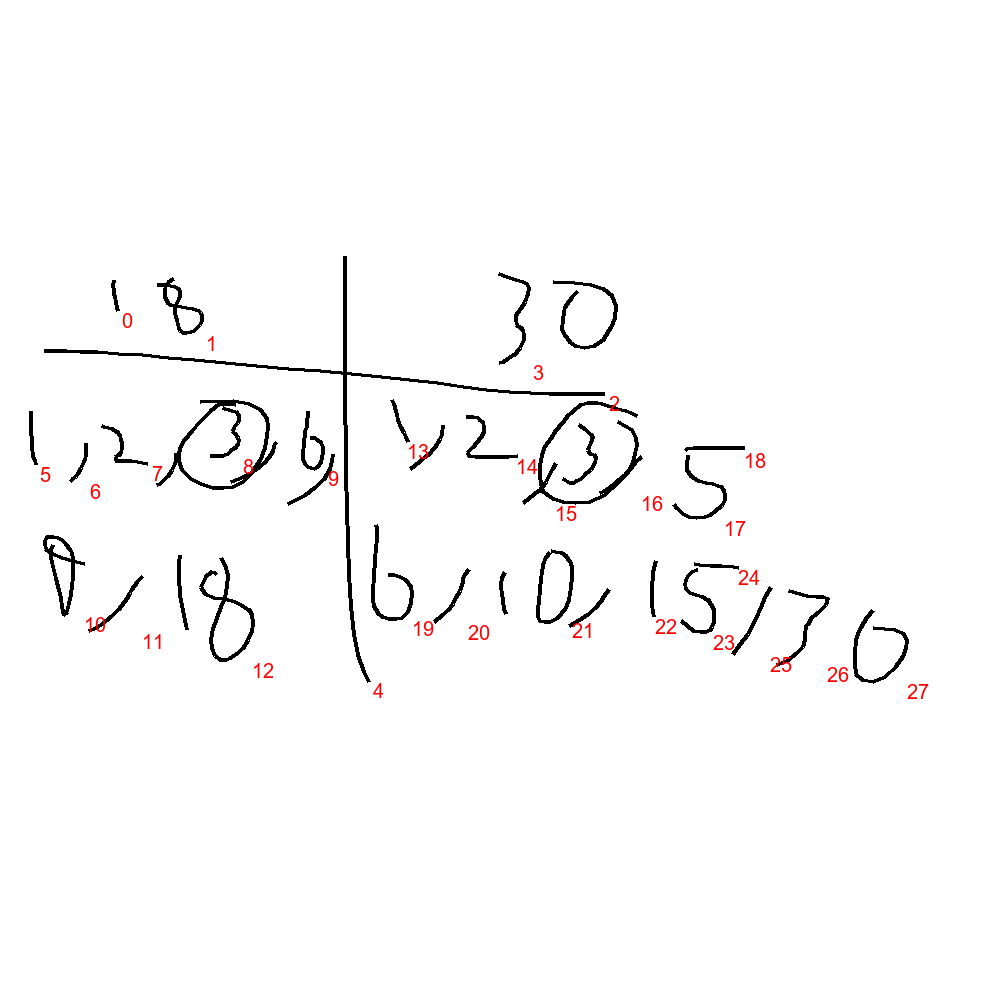 18 30
1,2,3,6, 1,2,3,5
9,18 6,10,15,30
0 1 2 3 4 5 6 7 8 9 10 11 12 13 14 15 16 17 18 19 20 21 22 23 24 25 26 27